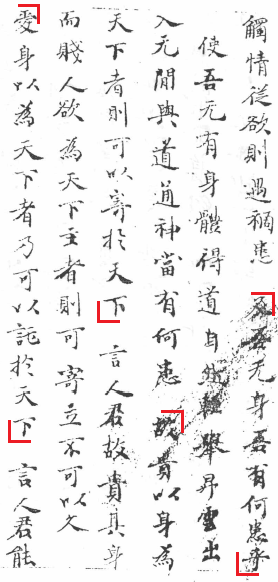 觸情從欲則遇禍患 及吾无身吾有何患
使吾无有身體得道自然輕舉昇雲出
入无閒與道通神當有何患 故貴以身為
天下者則可以寄於天下 言人君故貴其身
而賤人欲為天下主者則可寄立不可以久
愛身以為天下者乃可以託於天下 言人君能